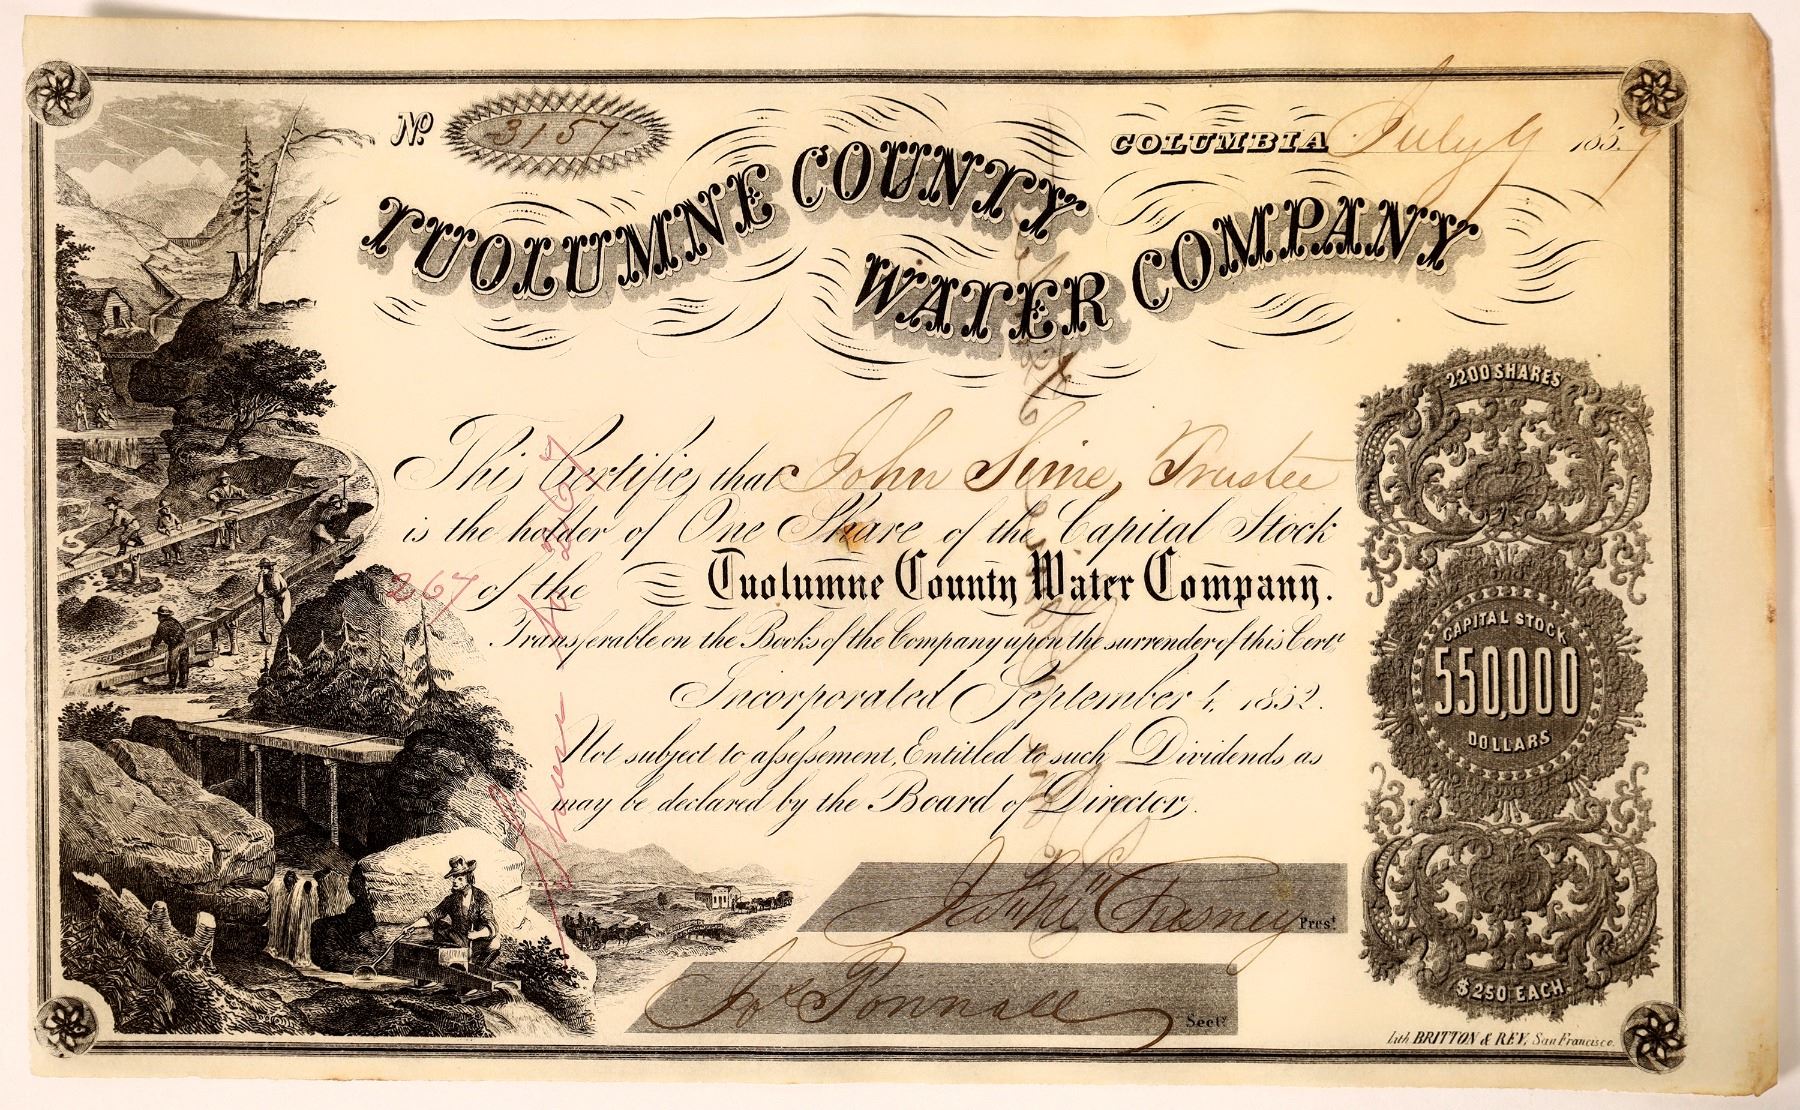 No 3157
COLUMBIA July 9 1859
TUOLUMNE COUNTY
WATER COMPANY
This Certifies that John Sime, Trustee
is the holder of One Share of the Capital Stock
267 of the Tuolumne County Water Company.
Transferable on the Books of the Company upon the surrender of this Certt
Incorporated September 4, 1852.
Not subject to assessment, Entitled to such Dividends as
may be declared by the Board of Directors.
Prest
Jos Pownall Secty
Share No 267
2200 SHARES
CAPITAL STOCK
550,000
DOLLARS
$250 EACH.
Lith. BRITTON & REY, San Francisco.